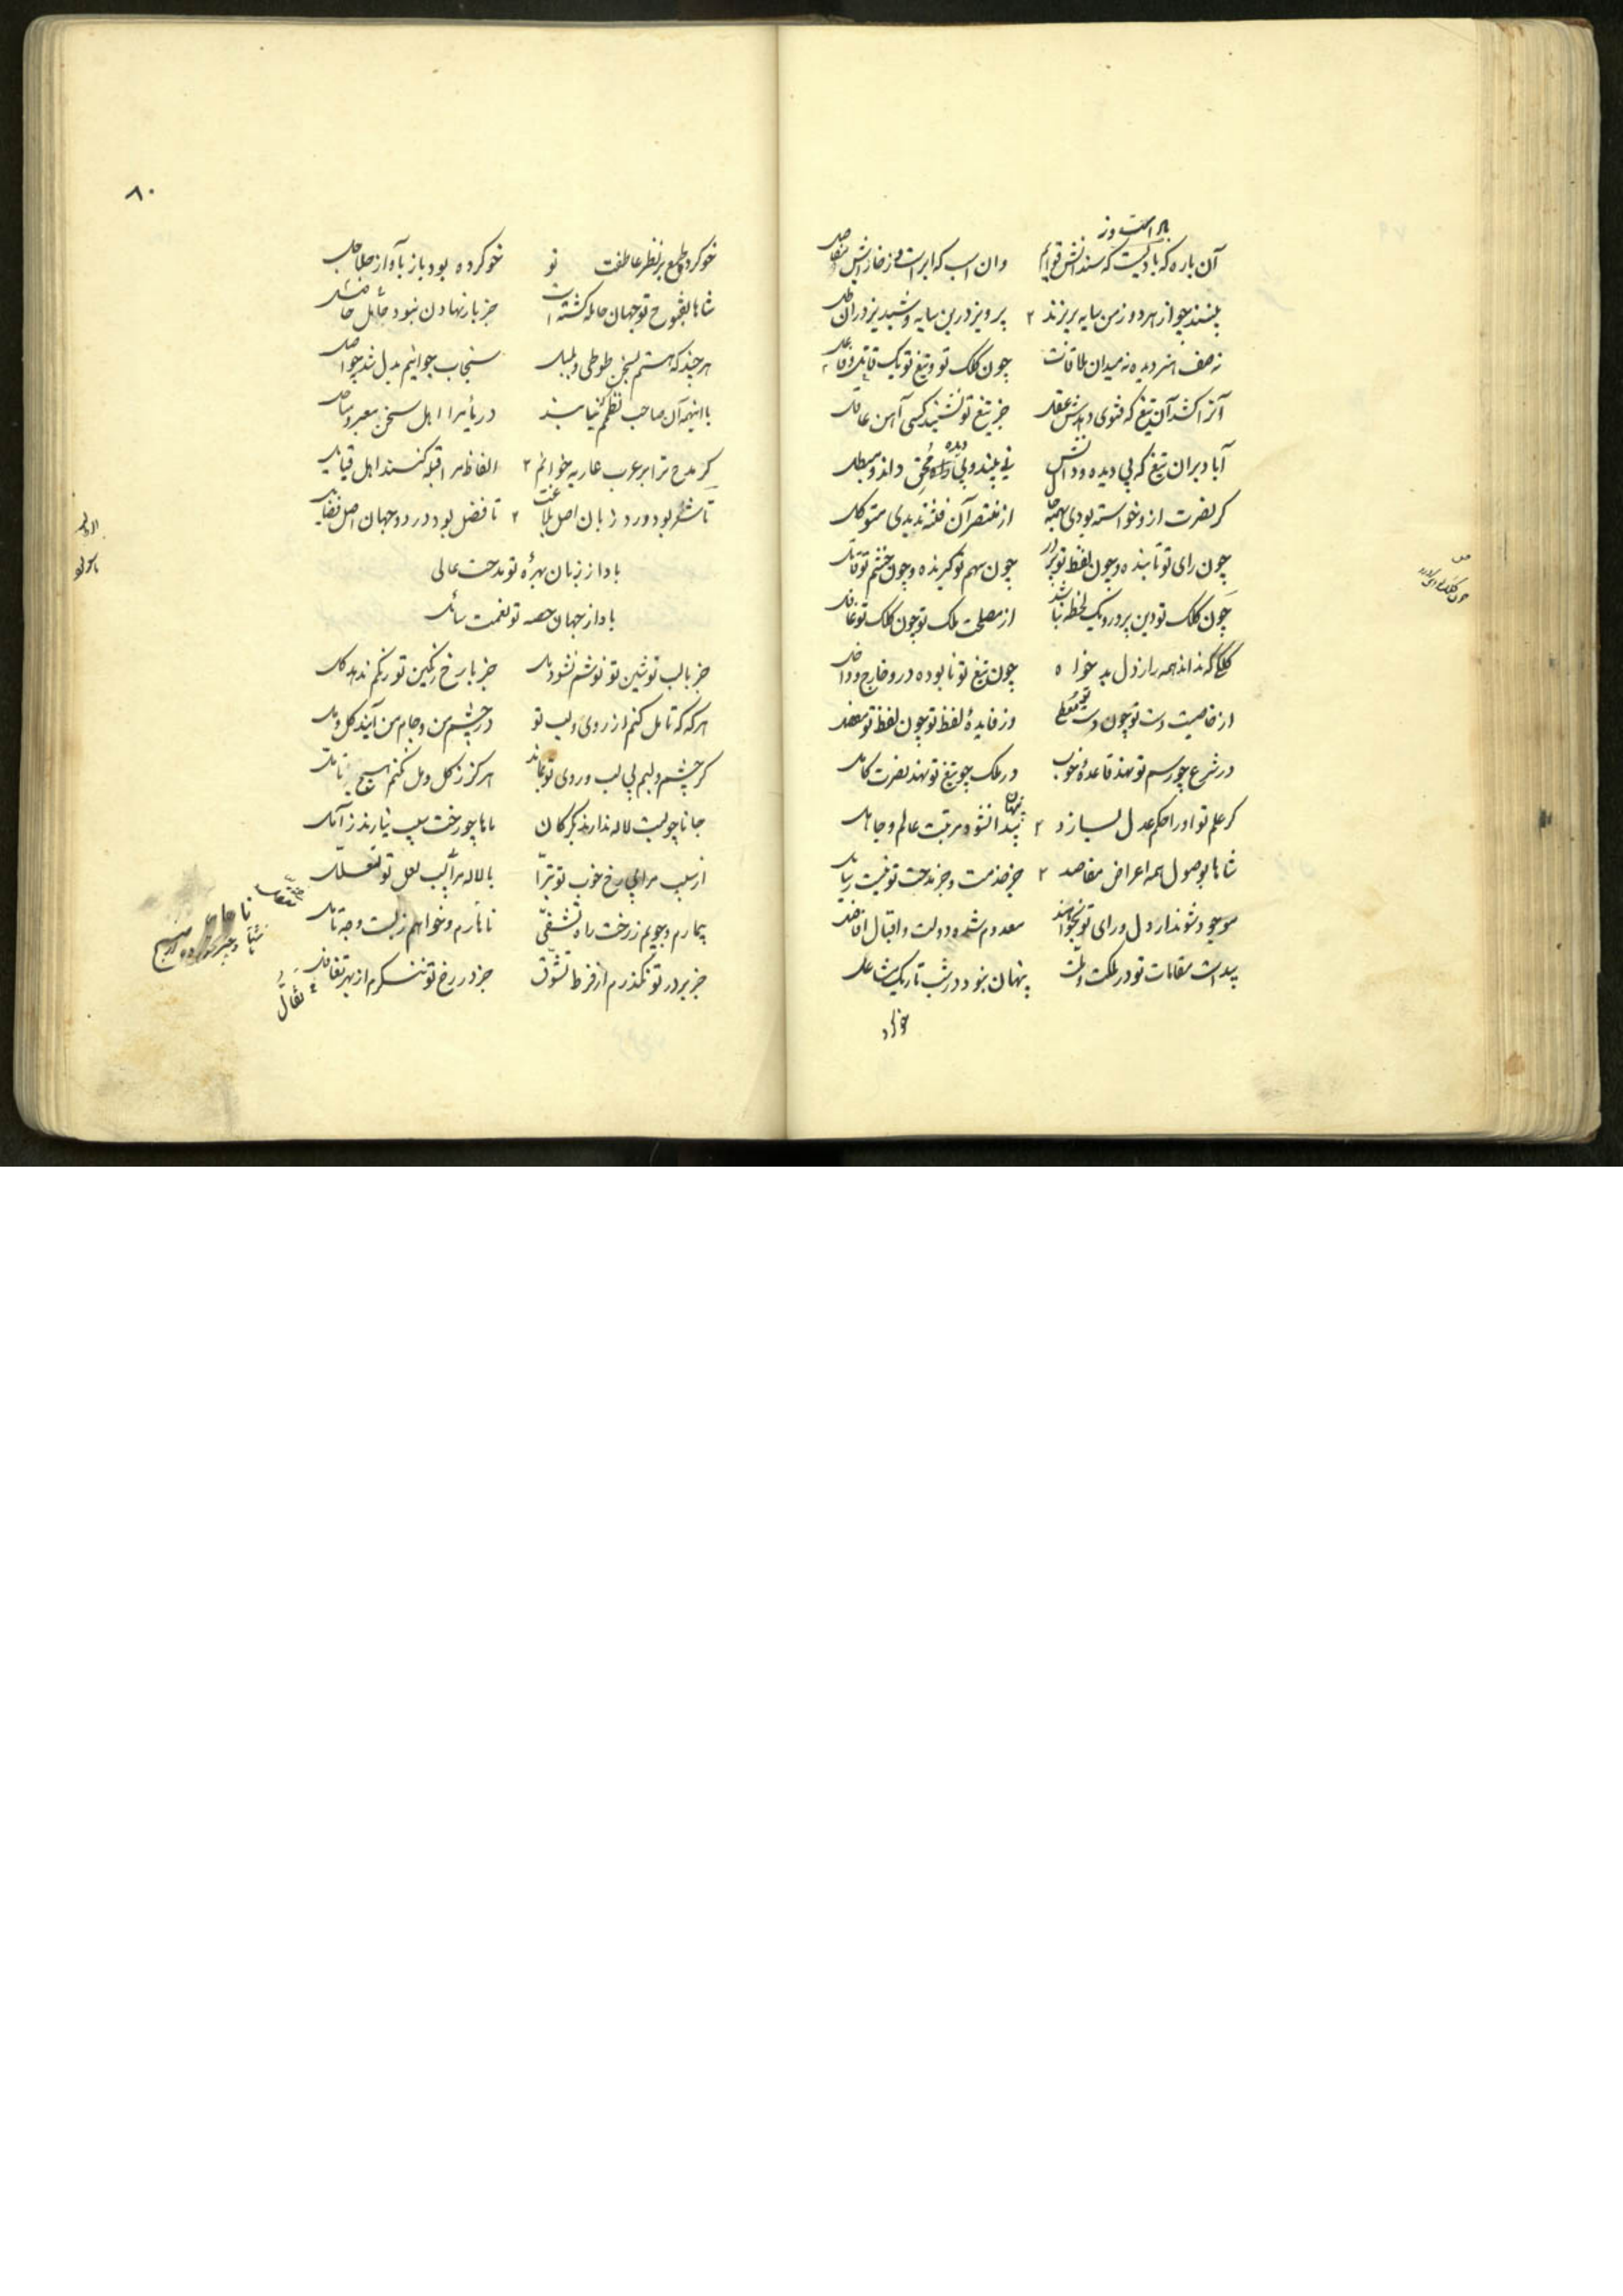 براست وز
آن باره که بادیست که سندانش قوایم وان اسب که ابراست و ز خارانش مفاصل
بیند چو از هر دو زمن سایه بریزند ۲ پرویز درین سایه و شبدیز دران ظل
نه صف هنر دیده نه میدان ملاقات چون کلک تو و تیغ تو یک قایل و فاعل
آنرا کشد آن تیغ که فتوی دهدش عقل جز تیغ تو نشنید کسی آهن عاقل
آباد بران تیغ که بی دیده و دانش بیند و بی دیده محق داند و مبطل
کر نصرت ازو خواسته بودی همه از منتصر آن فتنه ندیدی متوکل
چون رای تو تابنده و چون لفظ تو پر در چون سهم تو گیرنده و چون خشم تو قاتل
چون کلک تو دین پرور و یک لحظه نباشد از مصلحت ملک تو چون کلک تو غافل
کلکی که نداند همه راز دل بدخواه چون تیغ تو نابوده در و خارج و داخل
از خاصیت دست تو چون دست تو معطی وز فایدهٔ لفظ تو چون لفظ تو مفضل
در شرع چو رسم تو نهد قاعدهٔ خوب در ملک چو تیغ تو نهد نصرت کامل
کر علم تو او را حکم عدل نسازد ۲ پیدا نشود مرتبت عالم و جاهل
پنهان
شاها بوصول همه اعراض مقاصد ۲ جز خدمت و جز مدحت تو نیست وسایل
موجود شود ندارد دل و رای تو نخواهند معدوم شده دولت و اقبال افاضل
پیداست مقامات تو در ملکت و ملت پنهان نبود در شب تاریک مشاعل
خوکرد
۸۰
خوکرده طمع بر نظر عاطفت تو خوکرده بود باز بآواز جلاجل
شاها بفتوح تو جهان حامله گشته است جز بار نهادن نبود حامل
هر چند که هستم بسخن طوطی و بلبل سنجاب جوانیم بدل شد بحواصل
با اینهمه آن صاحب نظمم که نیابند در یای مرا اهل سخن معبر و ساحل
کر مدح ترا بر عرب عاریه خوانم ۲ الفاظ مرا قبله کنند اهل قبایل
تا شکر بود ورد زبان اصل بلاغت ۲ تا فضل بود در دو جهان اصل فضایل
بادا ز زبان بهرهٔ تو مدحت عالی
بادا ز جهان حصه تو نعمت سائل
جز با لب نوشین تو نوشم نشود مل جز با رخ رنگین تو رنگم ندهد گل
هر که که تامل کنم از روی و لب تو در چشم من و جام من آیند گل و مل
کر چشم و لبم بی لب و روی تو بماند هرگز ز گل و مل نکنم هیچ تامل
جانا چو لبت لاله ندارند بگرگان ماها چو رخت سیب نیارند ز آمل
از سیب مرا بی رخ خوب تو تبرا با لاله مرا بی لب لعل تو تعلل
بیمارم و جویم ز رخت راه تشفی ناهارم و خواهم ز لبت وجه تناول
جز بر در تو نگذرم از فرط تشوق جز در رخ تو ننگرم از بهر تفال
تفأل